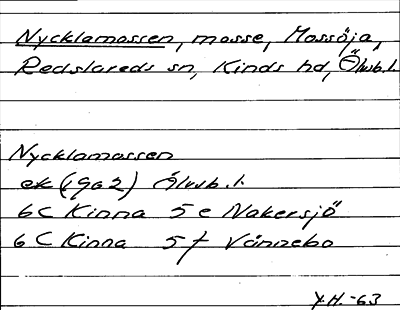 Nycklamossen, mosse, Mossöja,
Redslareds sn, Kinds hd, Älvsb. l.
Nycklamossen
ek (1902) Älvsb. l.
6C Kinna 5e Nakersjö
6C Kinna 5f Vännebo
H. -63